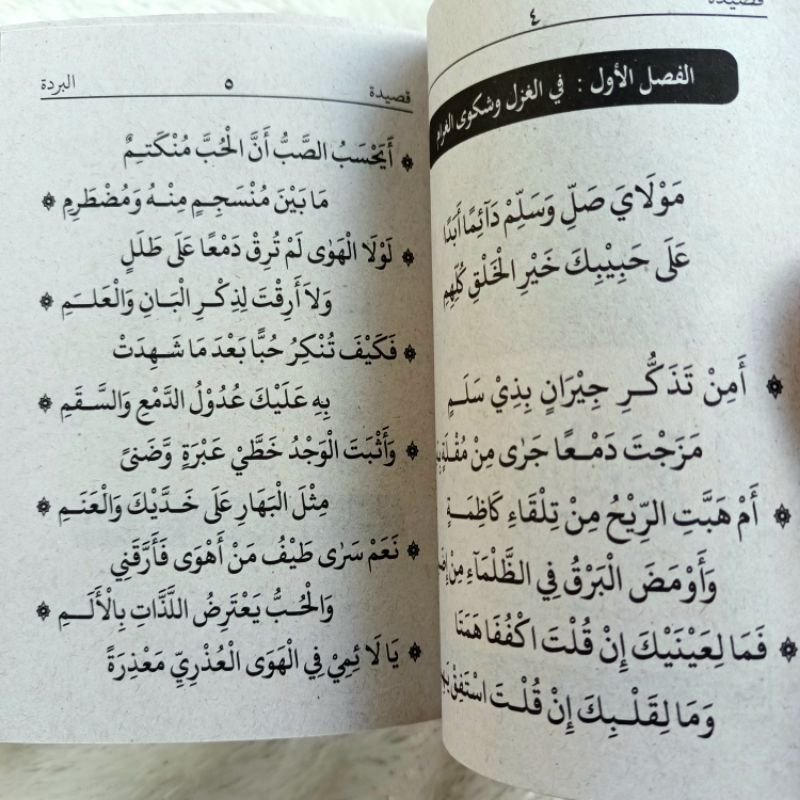 قصيدة ٤
الفصل الأول : في الغزل وشكوى الغرام
مَوْلَايَ صَلِّ وَسَلِّمْ دَآئِمًا أَبَدًا
عَلَى حَبِيْبِكَ خَيْرِ الْخَلْقِ كُلِّهِمِ
أَمِنْ تَذَكُّرِ جِيْرَانٍ بِذِيْ سَلَمٍ
مَزَجْتَ دَمْعًا جَرٰى مِنْ مُقْلَةٍ
أَمْ هَبَّتِ الرِّيْحُ مِنْ تِلْقَاءِ كَاظِمَةٍ
وَأَوْمَضَ الْبَرْقُ فِي الظَّلْمَاءِ مِنْ
فَمَا لِعَيْنَيْكَ إِنْ قُلْتَ اكْفُفَا هَمَتَا
وَمَا لِقَلْبِكَ إِنْ قُلْتَ اسْتَفِقْ
قصيدة ٥ البردة
أَيَحْسَبُ الصَّبُّ أَنَّ الْحُبَّ مُنْكَتِمٌ
مَا بَيْنَ مُنْسَجِمٍ مِنْهُ وَمُضْطَرِمِ
لَوْلَا الْهَوٰى لَمْ تُرِقْ دَمْعًا عَلَى طَلَلٍ
وَلَا أَرِقْتَ لِذِكْرِ الْبَانِ وَالْعَلَمِ
فَكَيْفَ تُنْكِرُ حُبًّا بَعْدَ مَا شَهِدَتْ
بِهِ عَلَيْكَ عُدُوْلُ الدَّمْعِ وَالسَّقَمِ
وَأَثْبَتَ الْوَجْدُ خَطَّيْ عَبْرَةٍ وَّضَنىً
مِثْلَ الْبَهَارِ عَلَى خَدَّيْكَ وَالْعَنَمِ
نَعَمْ سَرٰى طَيْفُ مَنْ أَهْوَى فَأَرَّقَنِي
وَالْحُبُّ يَعْتَرِضُ اللَّذَّاتِ بِالْأَلَمِ
يَا لَائِمِيْ فِي الْهَوَى الْعُذْرِيِّ مَعْذِرَةً